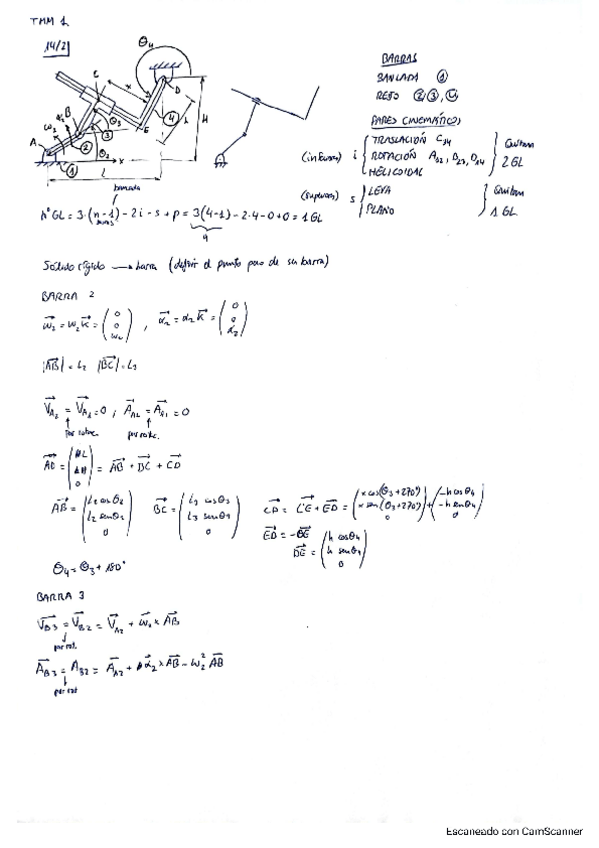 TMM 1
14/21
BARRAS
BANCADA ①
RESTO ②,③,④
PARES CINEMÁTICOS
(inferiores) i { TRASLACIÓN C34
ROTACIÓN A12, B23, D14 } Quitan 2GL
HELICOIDAL
(superiores) s { LEVA
PLANO } Quitan 1 GL
θ4
A B C D E
ω2 α2 θ2 θ3 x h H L
① ② ③ ④
bancada
nº GL = 3·(n-1) - 2i - s + p = 3(4-1) - 2·4 - 0 + 0 = 1GL
barras
9
Sólido rígido → barra (definir el punto para de su barra)
BARRA 2
ω2 = ω2 k = (0 0 ω2), α2 = α2 k = (0 0 α2)
|AB| = L2 |BC| = L3
VA2 = VA1 = 0 ; AA2 = AA1 = 0
por rotac. por rotac.
AD = ( L H 0) = AB + BC + CD
AB = (L2 cosθ2 L2 senθ2 0) BC = (L3 cosθ3 L3 senθ3 0) CD = CE + ED = (x cos(θ3+270°) x sen(θ3+270°) 0) + (-h cosθ4 -h senθ4 0)
ED = -DE
DE = (h cosθ4 h senθ4 0)
θ4 = θ3 + 180°
BARRA 3
VB3 = VB2 = VA2 + ω2 × AB
por rot.
AB3 = AB2 = AA2 + α2 × AB - ω2² AB
por rot
Escaneado con CamScanner